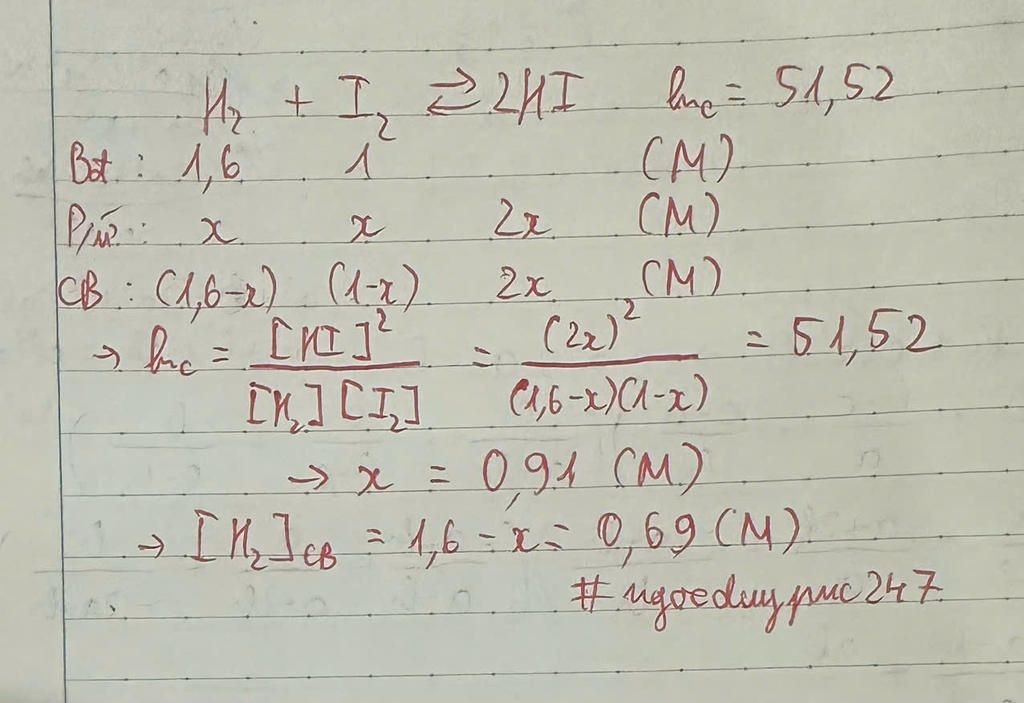 H₂ + I₂ ⇌ 2HI kc = 51,52
Bđ : 1,6 1 (M)
P/ứ : x x 2x (M)
CB : (1,6-x) (1-x) 2x (M)
→ kc = [HI]² / [H₂][I₂] = (2x)² / (1,6-x)(1-x) = 51,52
→ x = 0,91 (M)
→ [H₂]CB = 1,6 - x = 0,69 (M)